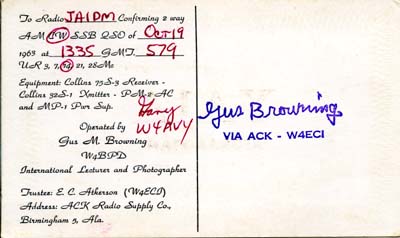 To Radio JA1DM Confirming 2 way
AM CW SSB QSO of Oct 19
1963 at 1335 GMT. 579
UR 3, 7, 14, 21, 28Mc
Equipment: Collins 75S-3 Receiver -
Collins 32S-1 Xmitter - PM-2 AC
and MP-1 Pwr Sup.
Operated by
W4
Gus M. Browning
W4BPD
International Lecturer and Photographer
Trustee: E. C. Atkerson (W4ECI)
Address: ACK Radio Supply Co.,
Birmingham 3, Ala.
Gus Browning
VIA ACK - W4ECI